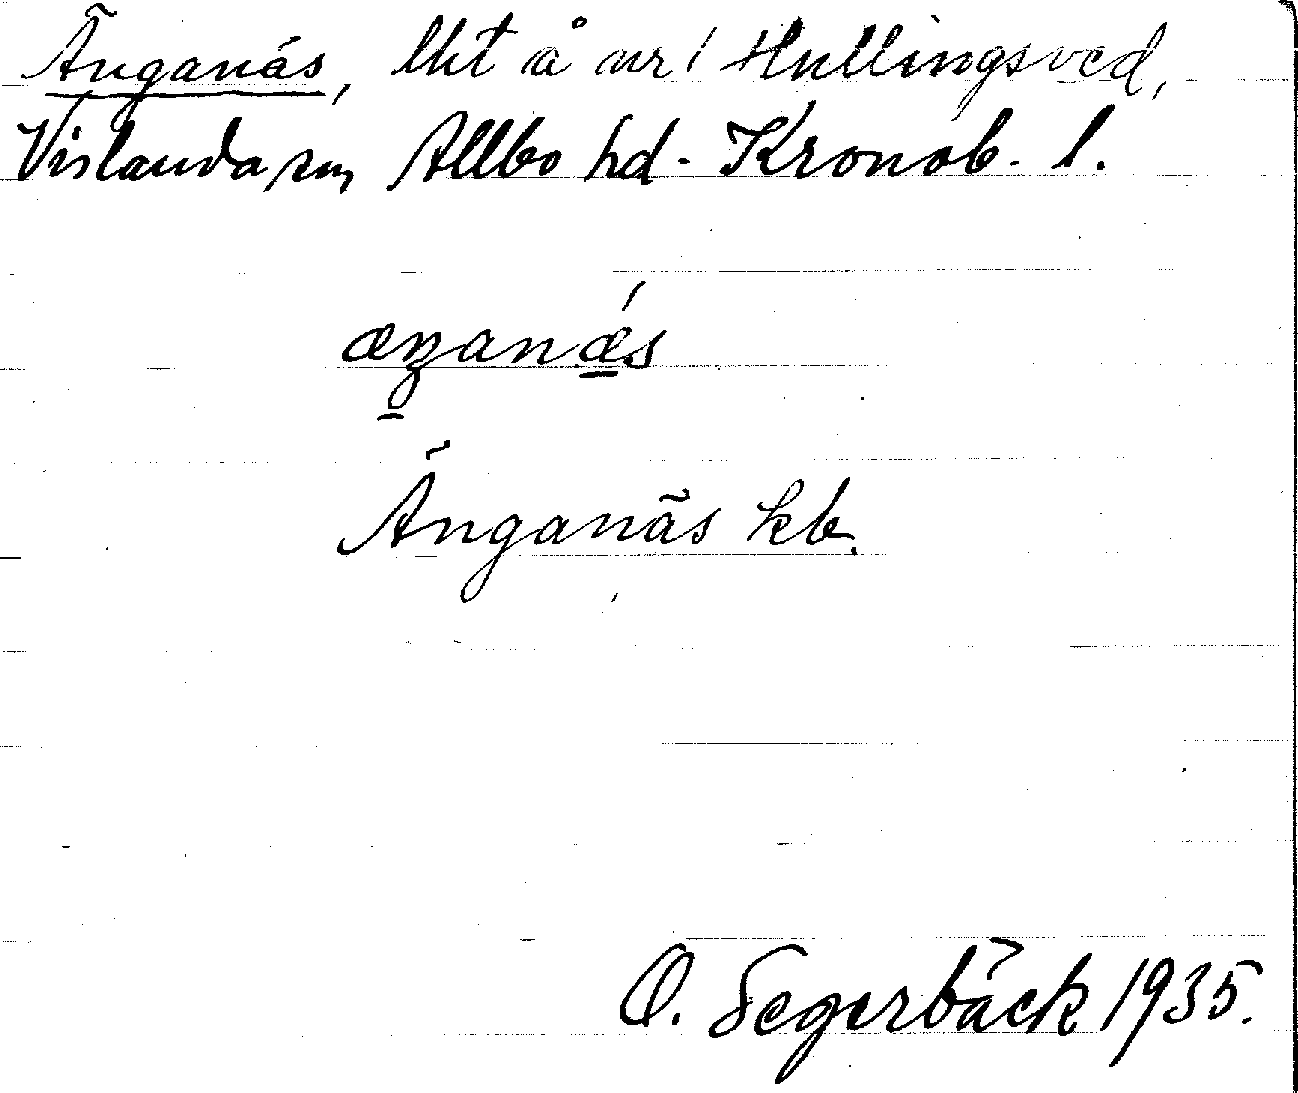 Änganäs, lht å nr 1 Hullingsved,
Vislanda sn, Allbo hd. Kronob. l.
æŋanǽs
Änganäs kb.
O. Segerbäck 1935.